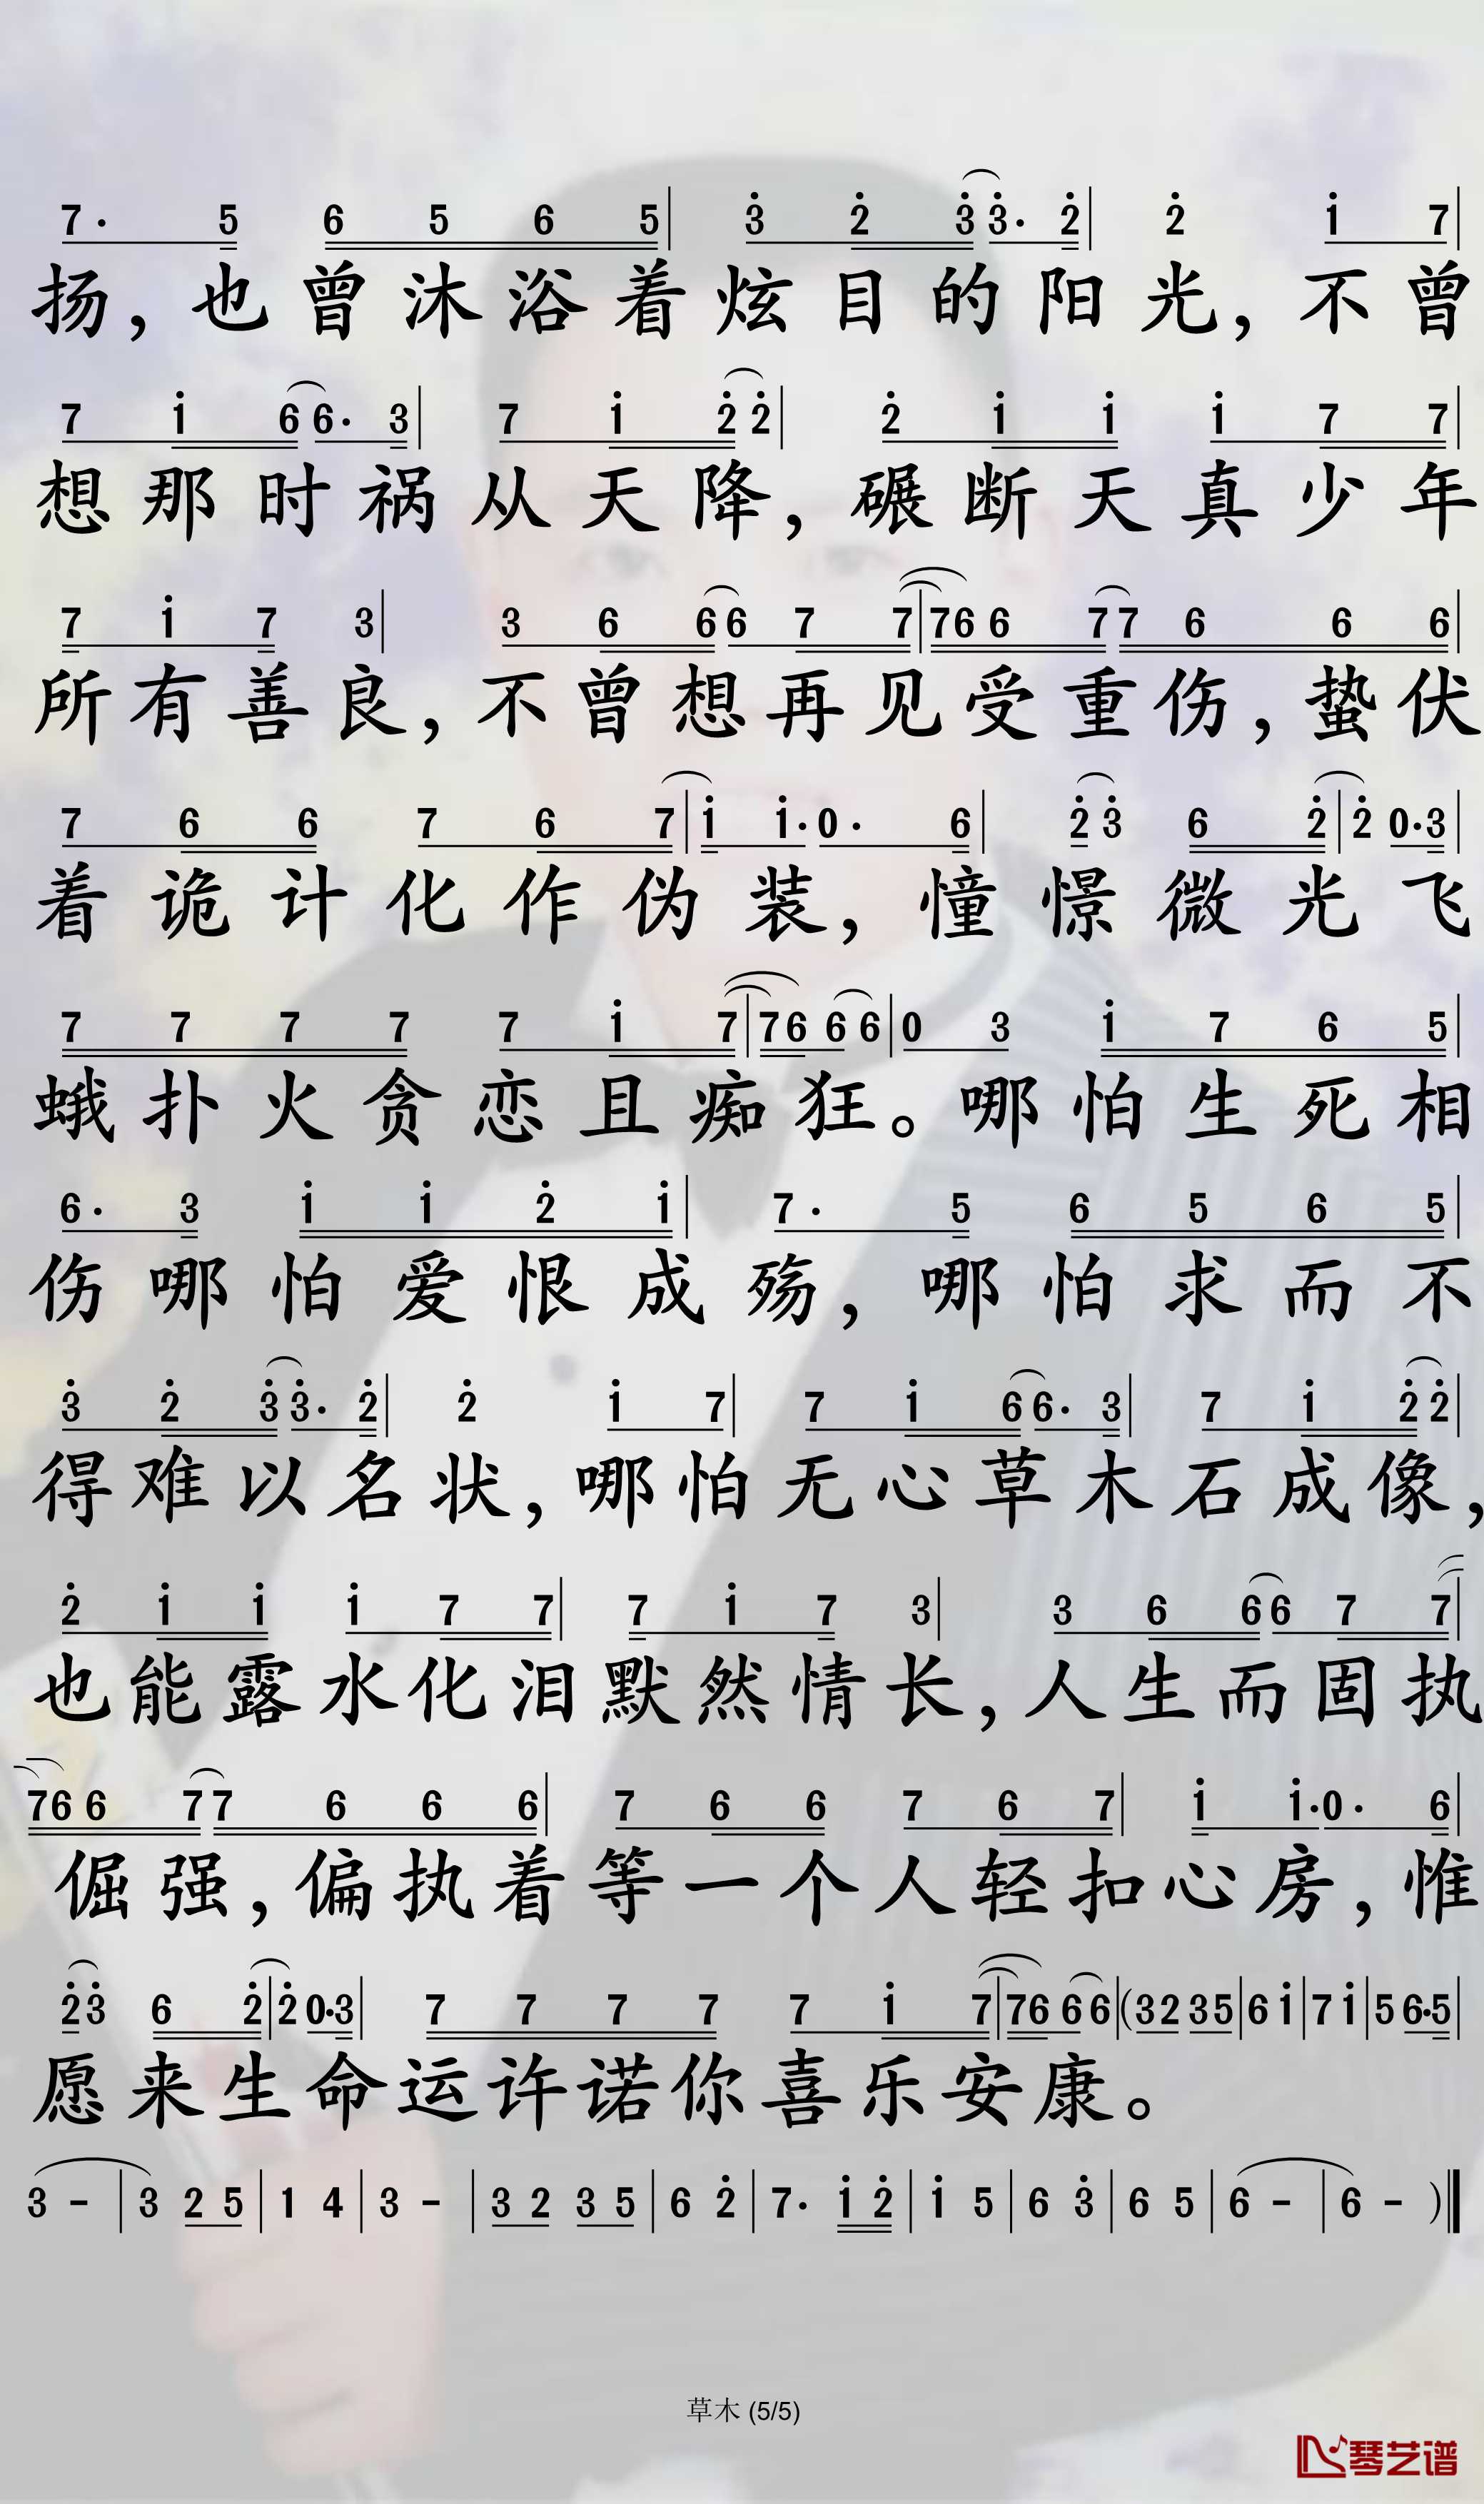 7· 5 6 5 6 5| 3̇ 2̇ 3̇ 3̇· 2̇| 2̇ i 7|
扬，也曾沐浴着炫目的阳光，不曾
7 i 6 6· 3| 7 i 2̇ 2̇| 2̇ i i i 7 7|
想那时祸从天降，碾断天真少年
7 i 7 3| 3 6 6 6 7 7| 7 6 6 7 7 6 6 6|
所有善良，不曾想再见受重伤，蛰伏
7 6 6 7 6 7| i i· 0· 6| 2̇ 3̇ 6 2̇| 2̇ 0· 3|
着诡计化作伪装，憧憬微光飞
7 7 7 7 7 i 7| 7 6 6 6| 0 3 i 7 6 5|
蛾扑火贪恋且痴狂。哪怕生死相
6· 3 i i 2̇ i| 7· 5 6 5 6 5|
伤哪怕爱恨成殇，哪怕求而不
3̇ 2̇ 3̇ 3̇· 2̇| 2̇ i 7| 7 i 6 6· 3| 7 i 2̇ 2̇|
得难以名状，哪怕无心草木石成像，
2̇ i i i 7 7| 7 i 7 3| 3 6 6 6 7 7|
也能露水化泪默然情长，人生而固执
7 6 6 7 7 6 6 6| 7 6 6 7 6 7| i i· 0· 6|
倔强，偏执着等一个人轻扣心房，惟
2̇ 3̇ 6 2̇| 2̇ 0· 3| 7 7 7 7 7 i 7| 7 6 6 6| (3 2 3 5| 6 i| 7 i| 5 6· 5|
愿来生命运许诺你喜乐安康。
3 -| 3 2 5| 1 4| 3 -| 3 2 3 5| 6 2̇| 7· i 2̇| i 5| 6 3̇| 6 5| 6 -| 6 - )‖
草木 (5/5)
琴艺谱